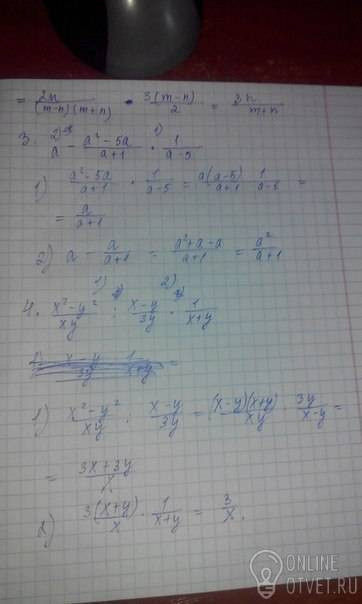 = 2n/((m-n)(m+n)) · 3(m-n)/2 = 3n/(m+n)
2) 1)
3. a - (a²-5a)/(a+1) · 1/(a-5)
1) (a²-5a)/(a+1) · 1/(a-5) = a(a-5)/(a+1) · 1/(a-5) =
= a/(a+1)
2) a - a/(a+1) = (a²+a-a)/(a+1) = a²/(a+1)
1) 2)
4. (x²-y²)/(xy) : (x-y)/(3y) · 1/(x+y)
1) (x²-y²)/(xy) : (x-y)/(3y) = ((x-y)(x+y))/(xy) · 3y/(x-y) =
= (3x+3y)/x
2) 3(x+y)/x · 1/(x+y) = 3/x.
ONLINE
OTVET.RU